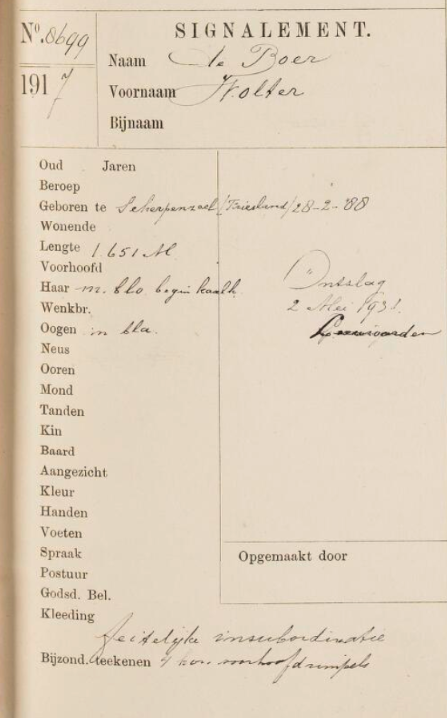 SIGNALEMENT.
No. 8699
Naam te Boer
1917
Voornaam Wolter
Bijnaam
Oud Jaren
Beroep
Geboren te Scherpenzeel (Friesland) 28-2-'88
Wonende
Lengte 1.651 M.
Voorhoofd
Haar m. blo. begin kaalh.
Ontslag
Wenkbr.
2 Mei 1931.
Oogen m bla.
Leeuwarden
Neus
Ooren
Mond
Tanden
Kin
Baard
Aangezicht
Kleur
Handen
Voeten
Spraak
Opgemaakt door
Postuur
Godsd. Bel.
Kleeding
feitelijke insubordinatie
Bijzond. teekenen 4 hor. voorhoofdrimpels